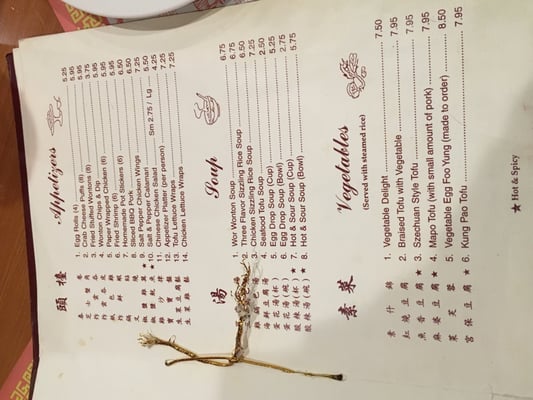 頭檯 Appetizers
春卷 1. Egg Rolls (4) 5.25
芝士蟹角 2. Crab Cheese Puffs (8) 5.95
炸雲吞 3. Fried Stuffed Wontons (8) 5.95
4. Wonton Chips & Dip 3.75
紙包雞 5. Paper Wrapped Chicken (6) 5.95
炸蝦 6. Fried Shrimp (6) 5.95
鍋貼 7. Homemade Pot Stickers (6) 5.95
叉燒 8. Sliced BBQ Pork 6.50
椒鹽雞翼 ★ 9. Salt Pepper Chicken Wings 6.50
椒鹽鮮魷 ★ 10. Salt & Pepper Calamari 7.25
雞沙律 11. Chinese Chicken Salad Sm 2.75 / Lg 5.50
寶寶盤 12. Appetizer Platter (per person) 4.25
生菜豆腐鬆 13. Tofu Lettuce Wraps 7.25
生菜雞鬆 14. Chicken Lettuce Wraps 7.25
湯 Soup
1. Wor Wonton Soup 6.75
2. Three Flavor Sizzling Rice Soup 6.75
3. Chicken Sizzling Rice Soup 5.25
海鮮豆腐湯 4. Seafood Tofu Soup 7.25
蛋花湯(杯) 5. Egg Drop Soup (Cup) 2.50
蛋花湯(碗) 6. Egg Drop Soup (Bowl) 5.25
酸辣湯(杯) ★ 7. Hot & Sour Soup (Cup) 2.75
酸辣湯(碗) ★ 8. Hot & Sour Soup (Bowl) 5.75
素菜 Vegetables
(Served with steamed rice)
素什錦 1. Vegetable Delight 7.50
紅燒豆腐 2. Braised Tofu with Vegetable 7.95
魚香豆腐 ★ 3. Szechuan Style Tofu 7.95
麻婆豆腐 ★ 4. Mapo Tofu (with small amount of pork) 7.95
菜芙蓉 5. Vegetable Egg Foo Yung (made to order) 8.50
宮保豆腐 ★ 6. Kung Pao Tofu 7.95
★ Hot & Spicy